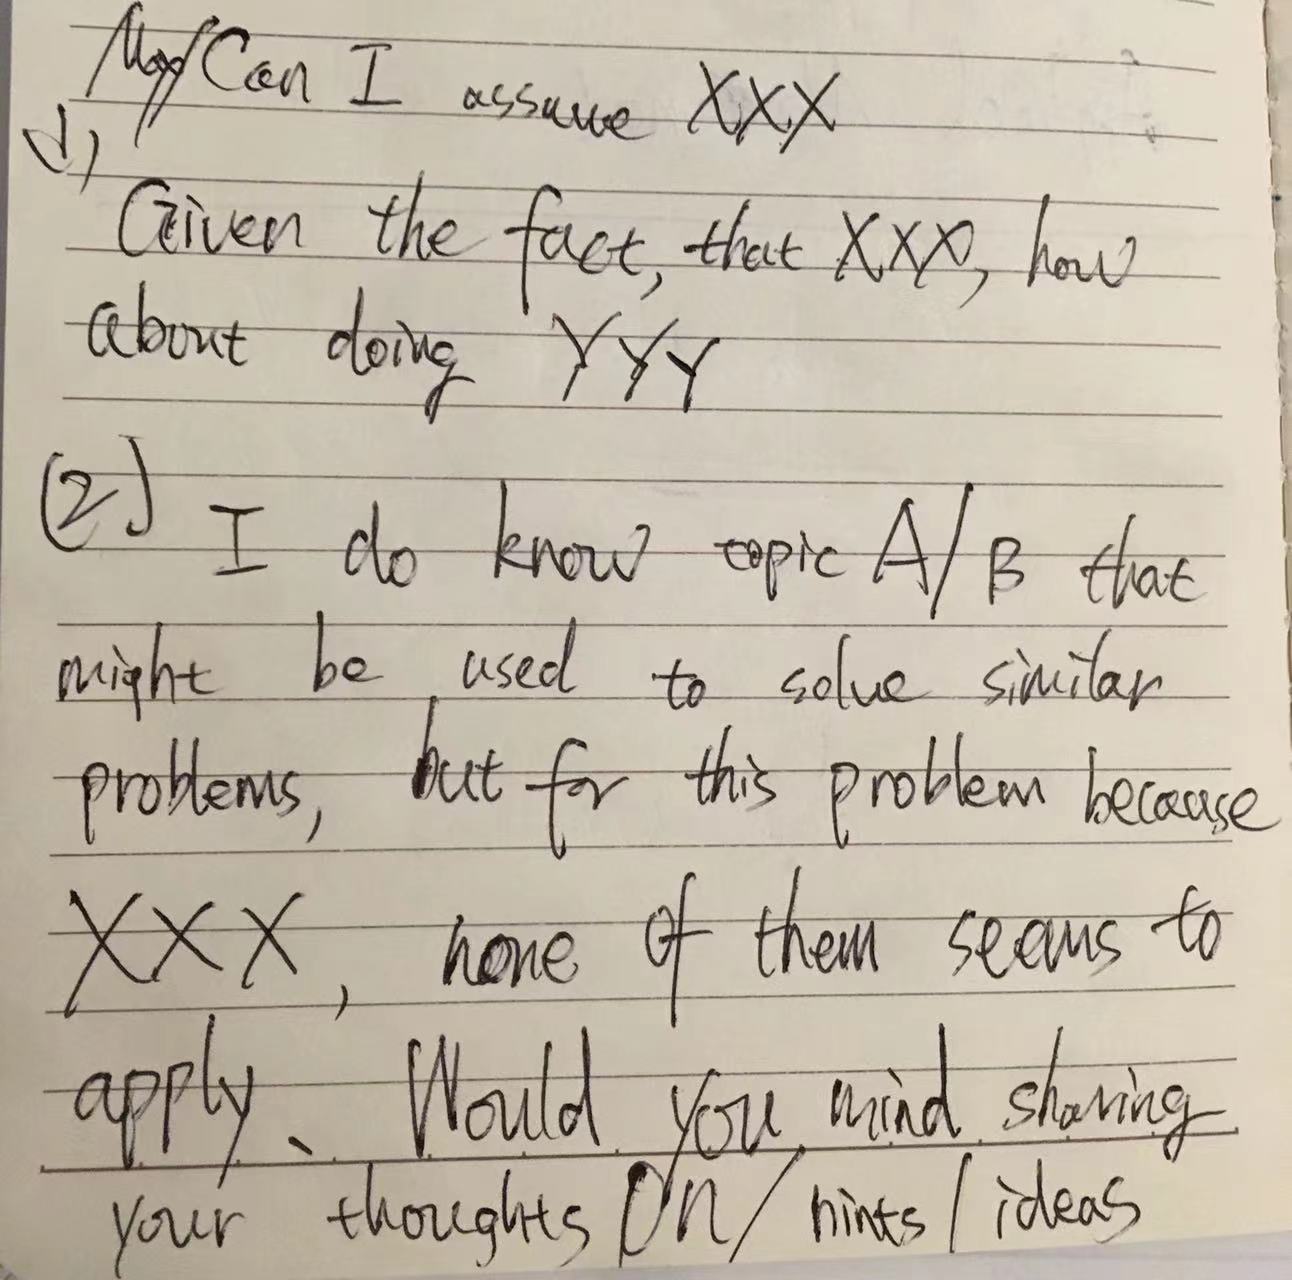 May/Can I assume XXX
1,
Given the fact, that XXX, how
about doing YYY
(2) I do know topic A/B that
might be used to solve similar
problems, but for this problem because
XXX, none of them seems to
apply. Would you mind sharing
your thoughts on/hints/ideas